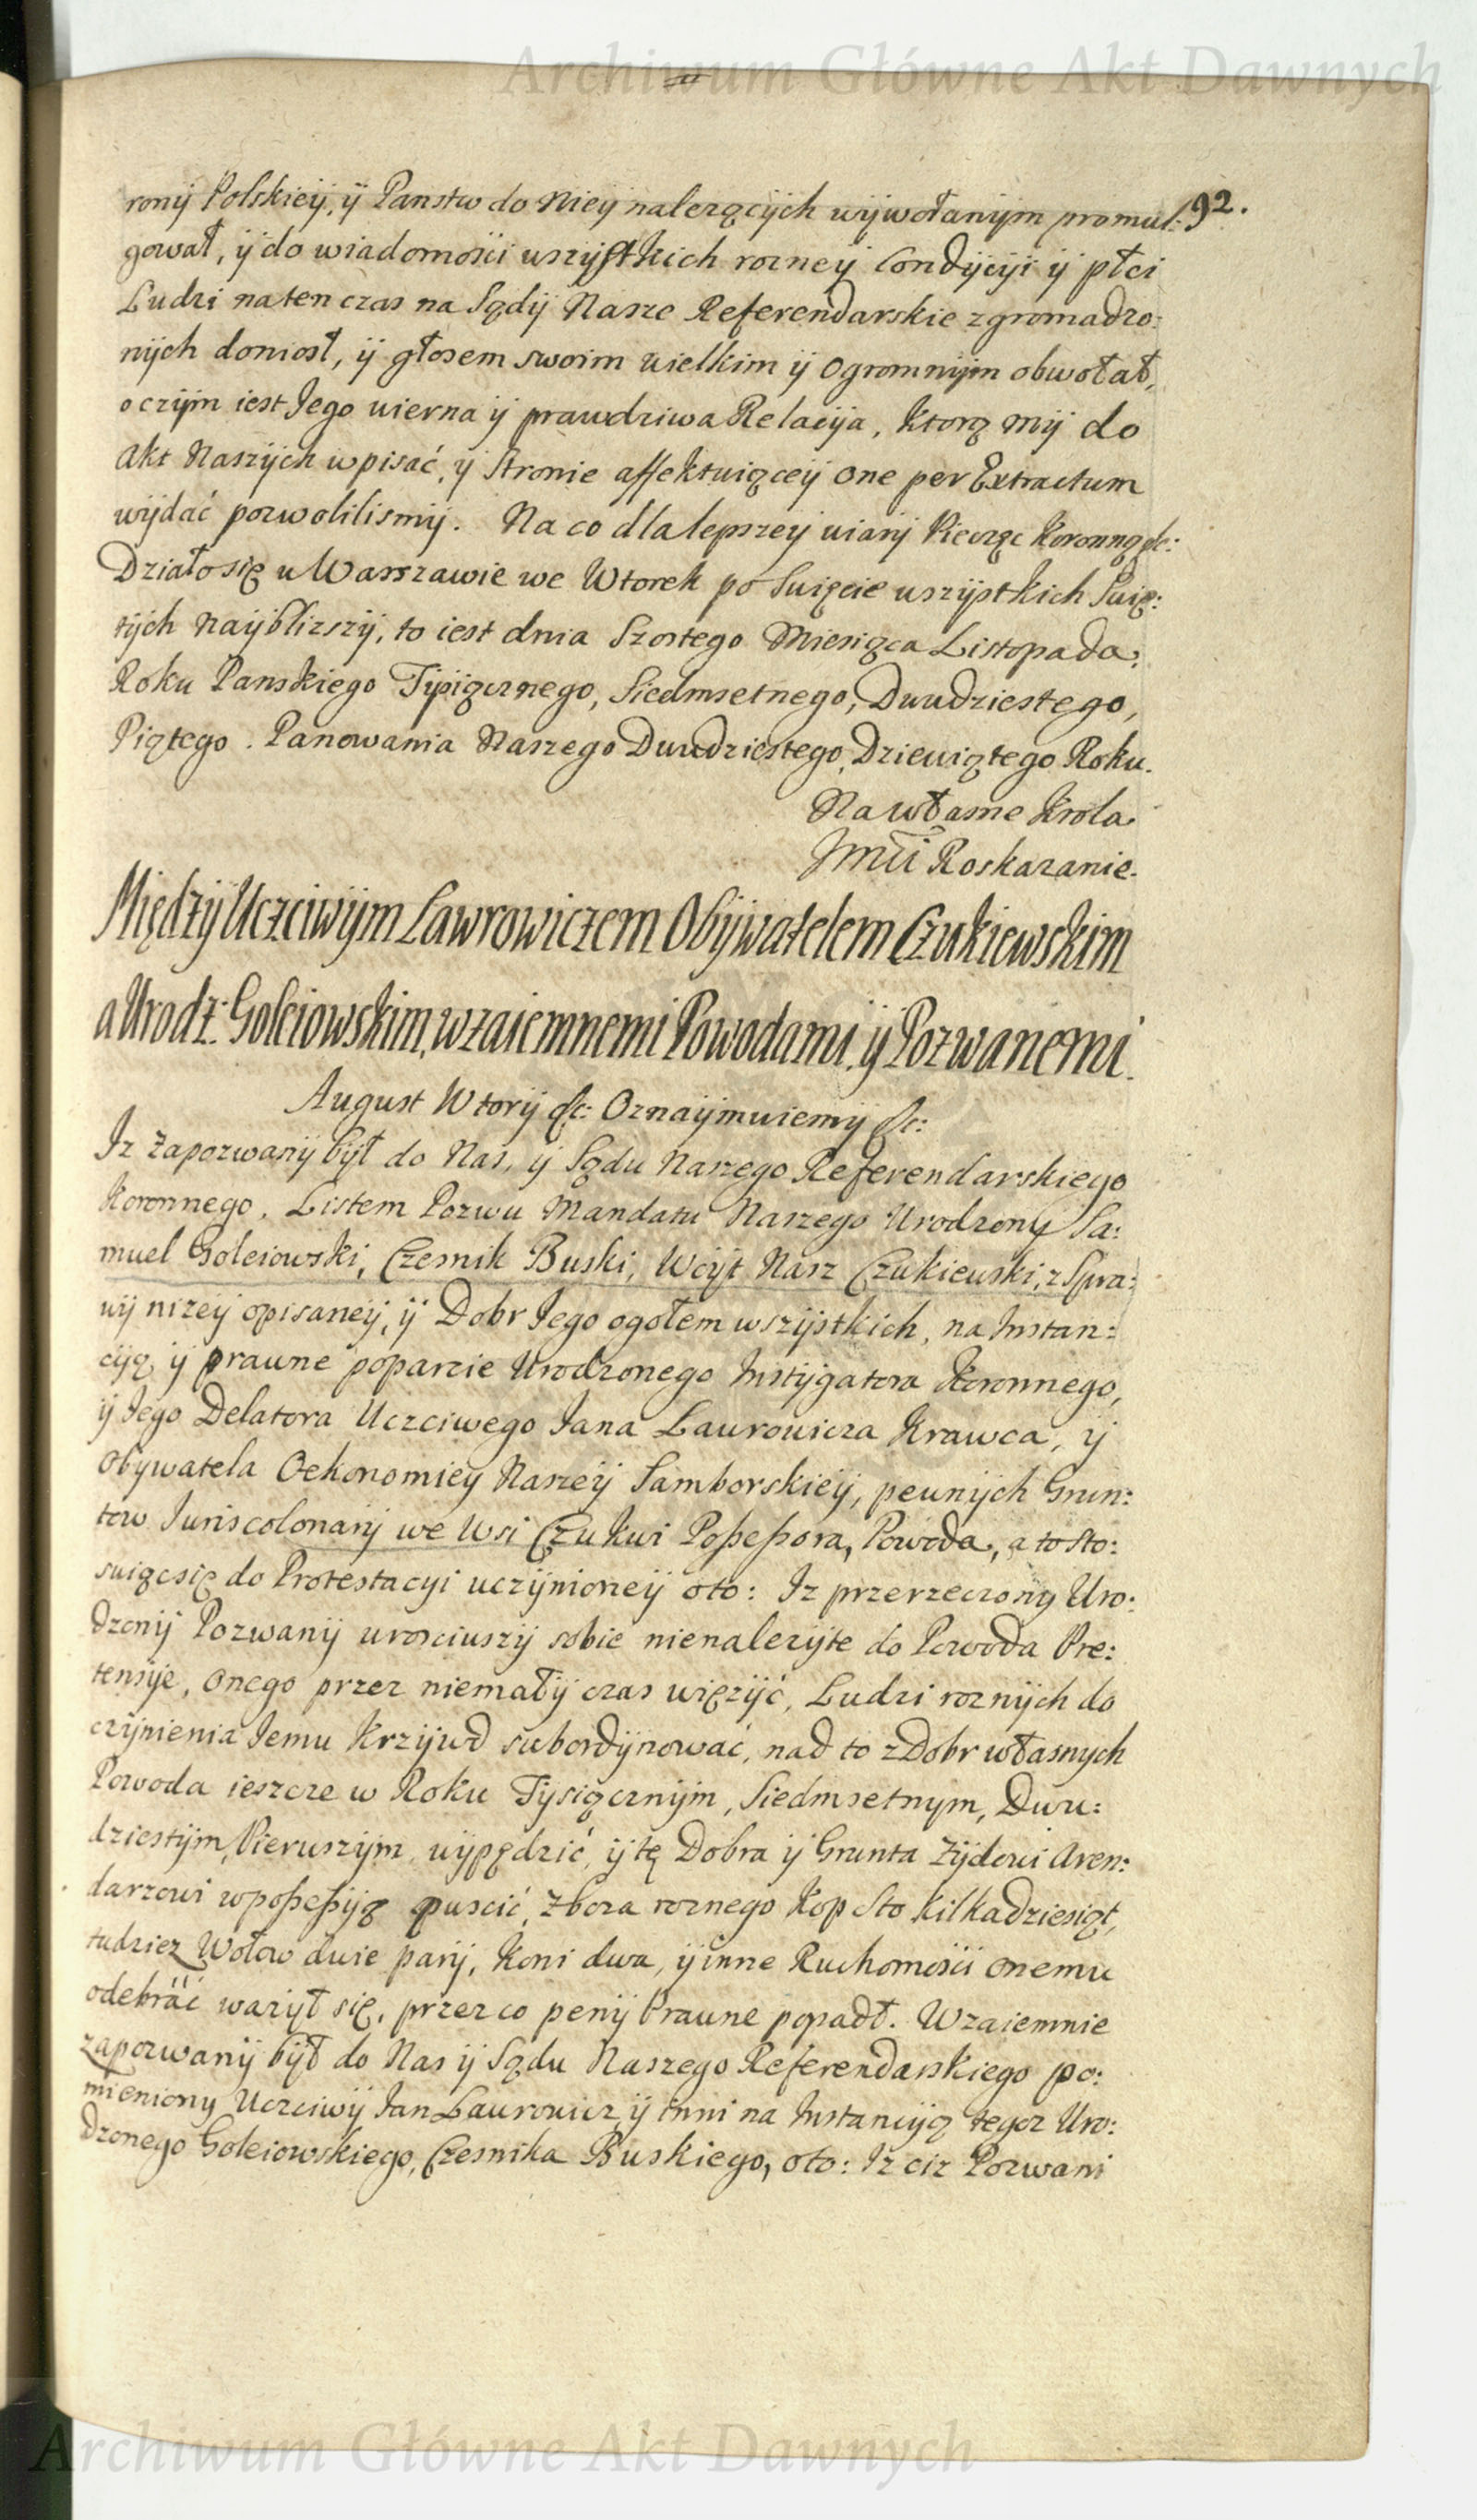 Archiwum Główne Akt Dawnych
92.
ronij Polskieij, ij Panstw do Nieij nalezącijch wijwołanijm promul:
gował, ij do wiadomości wszijstkich rozneij Condijcji ij płci
Ludzi na ten czas na Sądij Nasze Referendarskie zgromadzo:
nijch doniosł, ij głosem swoim wielkim ij ogromnijm obwołał,
o czijm iest Jego wierna ij prawdziwa Relacija, ktorą mij do
Akt Naszijch wpisać, ij Stronie affektuiąceij one per Extractum
wijdać pozwolilismij. Na co dla lepszeij wiarij Pieczęc Koronną &c:
Działo się w Warszawie we Wtorek po Swięcie wszijstkich Swię:
tijch naijblizszij, to iest dnia Szostego Miesiąca Listopada,
Roku Panskiego Tysiącznego, Siedmsetnego, Dwudziestego,
Piątego. Panowania Naszego Dwudziestego, Dziewiątego Roku.
Na własne Krola
Jmći Roskazanie.
Międzij Uczciwijm Lawrowiczem Obijwatelem Czukiewskim
a Urodz: Goleiowskim, wzaiemnemi Powodami, ij Pozwanemi.
August Wtorij &c: Oznaijmuiemij &c:
Iz Zapozwanij bijł do Nas, ij Sądu Naszego Referendarskiego
Koronnego, Listem Pozwu Mandatu Naszego Urodzony Sa:
muel Goleiowski, Czesnik Buski, Wcijt Nasz Czukiewski, z Spra:
wij nizeij opisaneij, ij Dobr Jego ogołem wszijstkich, na Instan:
ciją, ij prawne poparcie Urodzonego Instijgatora Koronnego,
ij Jego Delatora Uczciwego Jana Lawrowicza Krawca, ij
Obywatela Oekonomiey Naszeij Samborskieij, pewnijch Grun:
tow Juriscolonarij we Wsi Czukwi Poßeßora, Powoda, a to sto:
suiąc się do Protestacyi uczijnioneij oto: Iz przerzeczony Uro:
dzonij Pozwanij urosciwszij sobie nienalezijte do Powoda Pre:
tensije, onego przez niemałij czas więzijć, Ludzi roznijch do
czijnienia Jemu Krzijwd subordijnować, nad to z Dobr własnych
Powoda ieszcze w Roku Tysiącznijm, Siedmsetnym, Dwu:
dziestijm, Pierwszijm wijpędzić, ij tę Dobra ij Grunta Zijdowi Aren:
darzowi w poßeßiją puscić, Zboza roznego Kop Sto kilkadziesiąt,
tudziez Wołow dwie parij, Koni dwa, ij inne Ruchomości onemu
odebrać wazijł się, przez co penij Prawne popadł. Wzaiemnie
zapozwanij bijł do Nas ij Sądu Naszego Referendarskiego po:
mieniony Uczciwij Jan Lawrowicz, ij inni na Instanciją tegoz Uro:
dzonego Goleiowskiego, Czesnika Buskiego, oto: Iz ciz Pozwani
Archiwum Główne Akt Dawnych